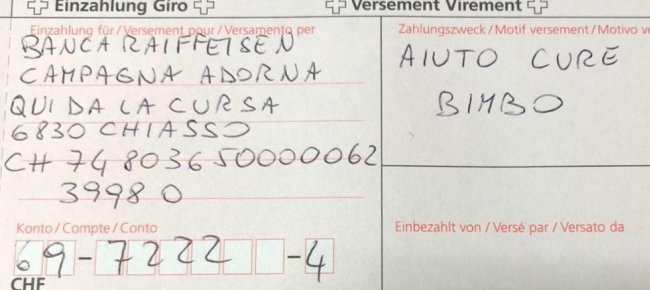 Einzahlung Giro
Versement Virement
Einzahlung für / Versement pour / Versamento per
BANCA RAIFFEISEN
CAMPAGNA ADORNA
QUI DA LA CURSA
6830 CHIASSO
CH 74 8036 50000062
3998 0
Konto / Compte / Conto
69-7222 -4
CHF
Zahlungszweck / Motif versement / Motivo
AIUTO CURE
BIMBO
Einbezahlt von / Versé par / Versato da